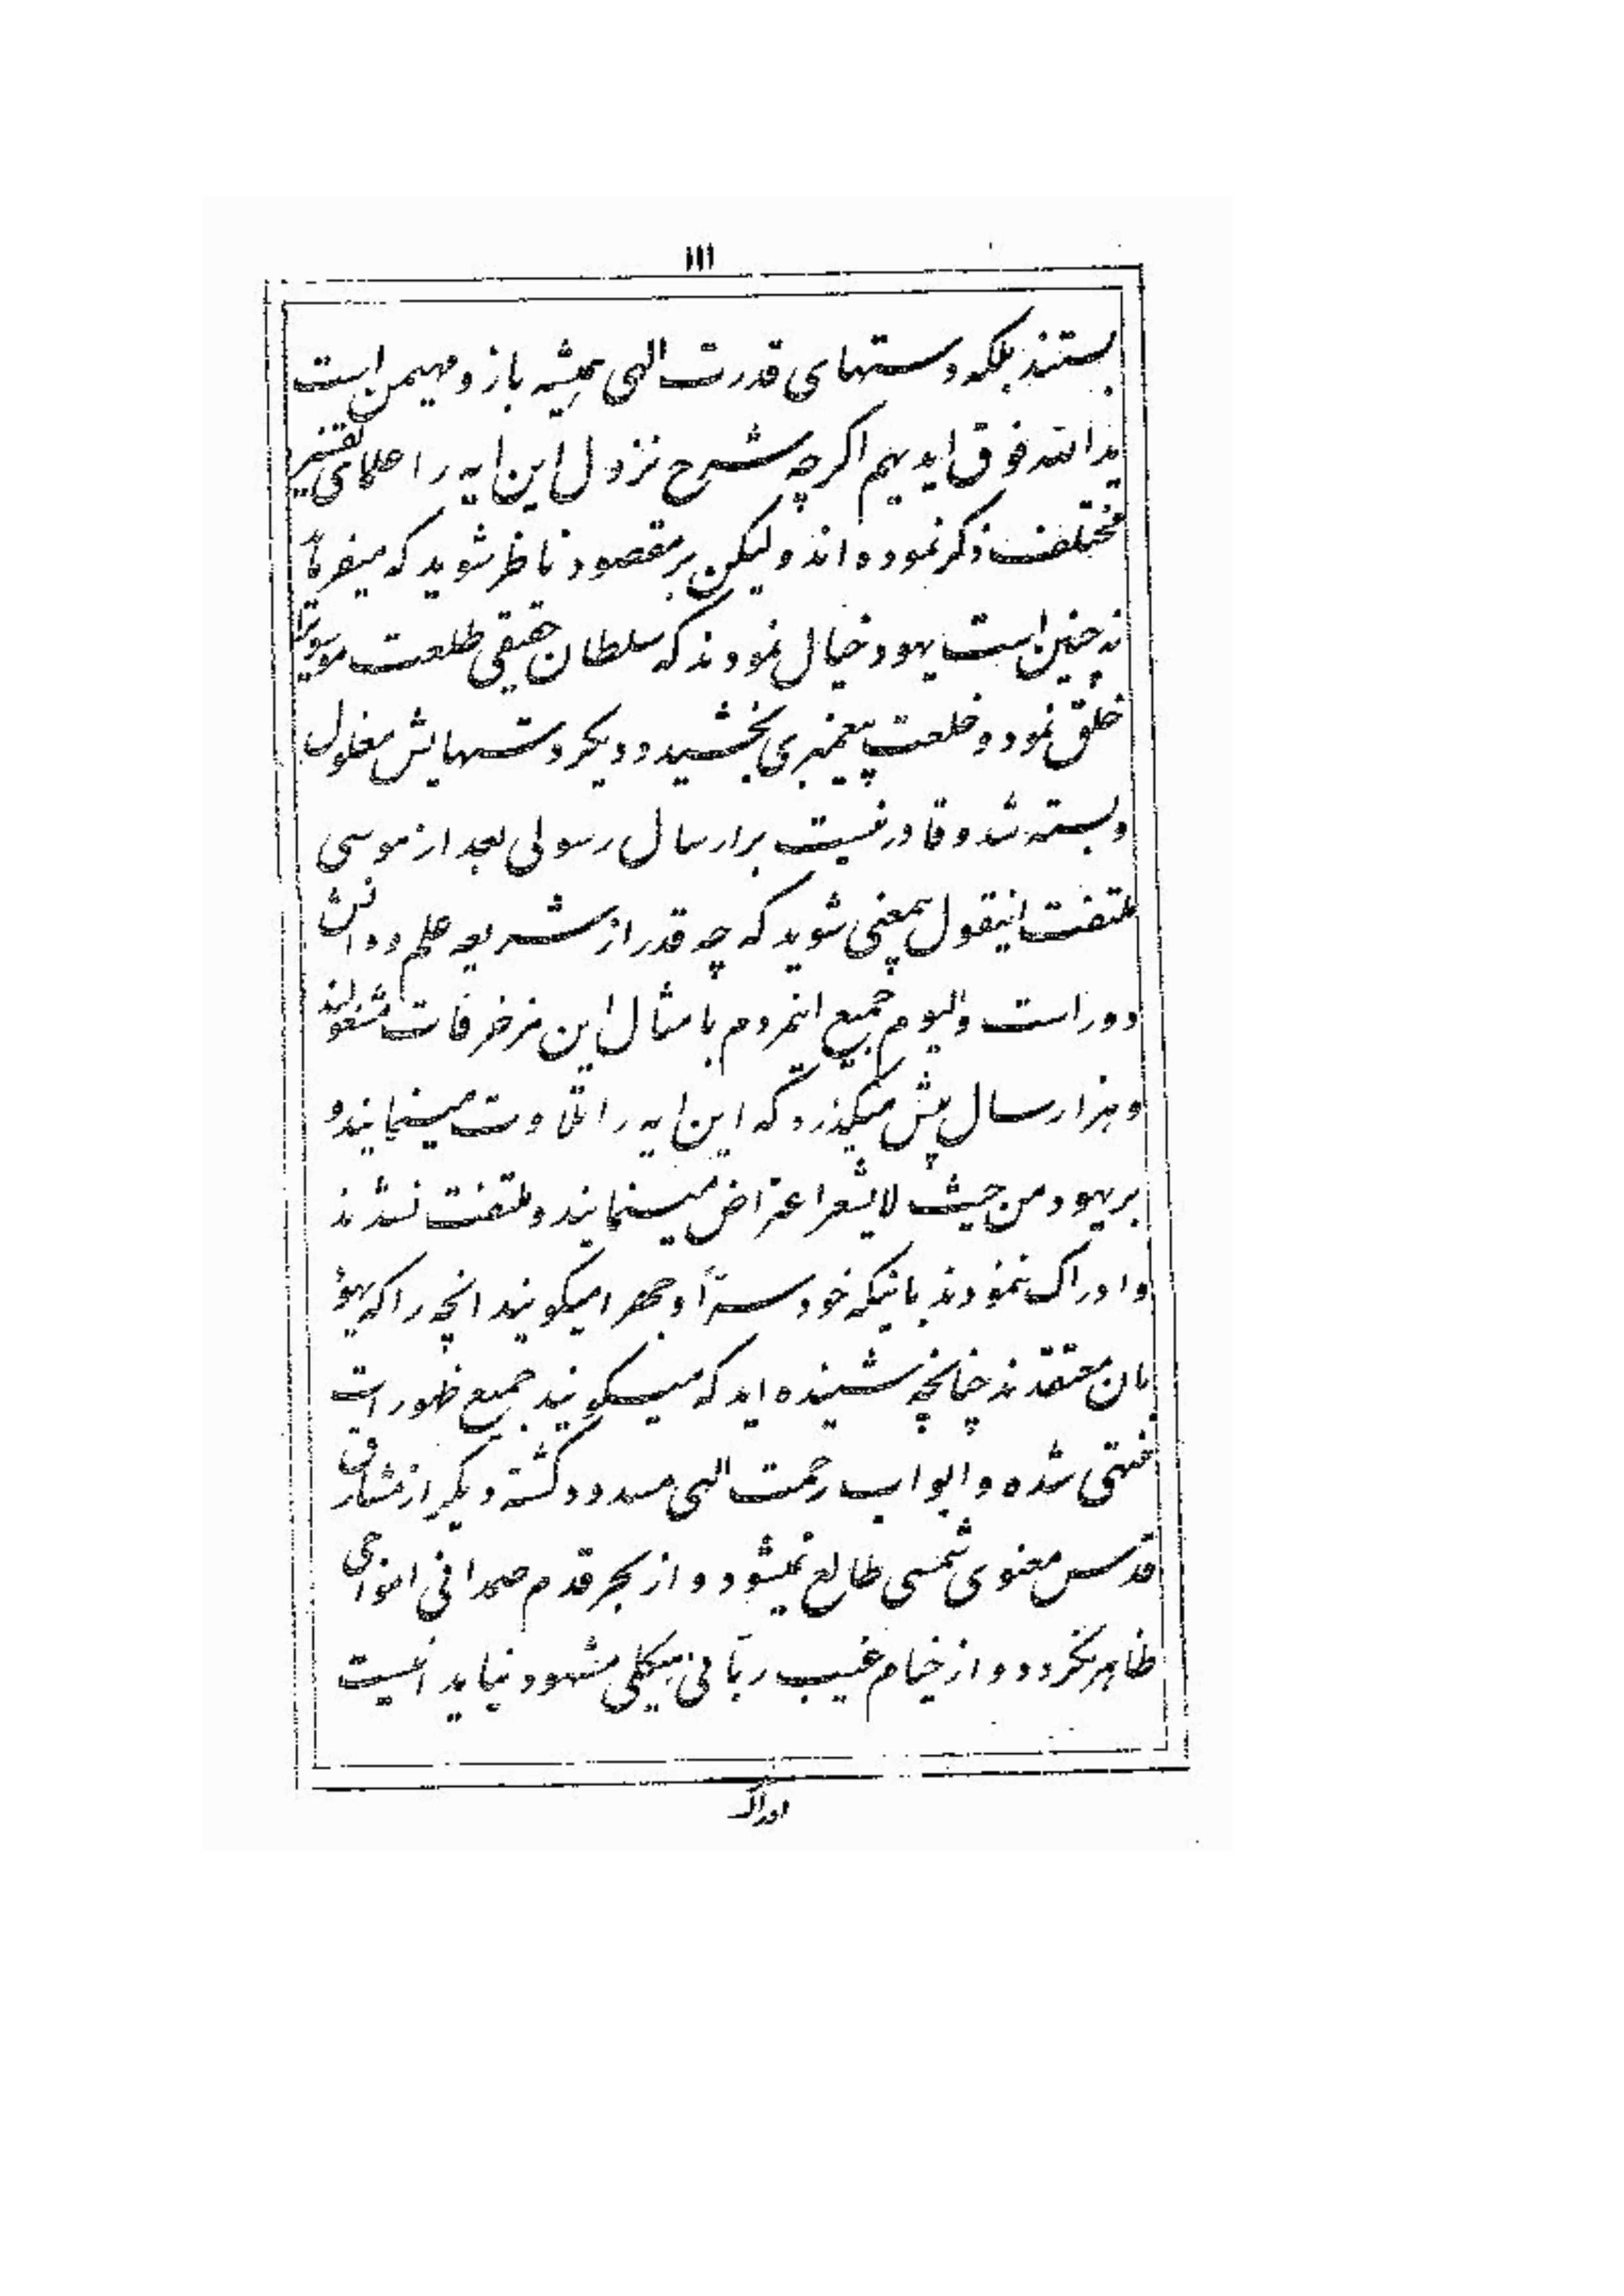 ۱۱۱
بستند بلکه دستهای قدرت الهی همیشه باز و مهیمن است
یدالله فوق ایدیهم اکر چه شرح نزول این ایه را علمای تفسیر
مختلف ذکر نموده اند ولیکن بر مقصود ناظر شوید که میفرماید
نه چنین است یهود خیال نمودند که سلطان حقیقی طلعت موسویرا
خلق نمود و خلعت پیغمبری بخشید و دیکر دستهایش مغلول
و بسته شد و قادر نیست بر ارسال رسولی بعد از موسی
ملتفت اینقول بیمعنی شوید که چه قدر از شریعه علم و دانش
دور است والیوم جمیع اینمردم بامثال این مزخرفات مشغولند
و هزار سال بیش میکذرد که این ایه را تلاوت مینمایند و
بر یهود من حیث لا یشعر اعتراض مینمایند و ملتفت نشدند
و ادراک ننمودند باینکه خود سرّاً و جهرا میکویند انچه را که یهود
بان معتقدند چنانچه شنیده اید که میکویند جمیع ظهورات
منتهی شده و ابواب رحمت الهی مسدود کشته دیکر از مشارق
قدس معنوی شمسی طالع نمیشود و از بحر قدم صمدانی امواجی
ظاهر نکردد و از خیام غیب ربّانی هیکلی مشهود نیاید اینست
ادراک